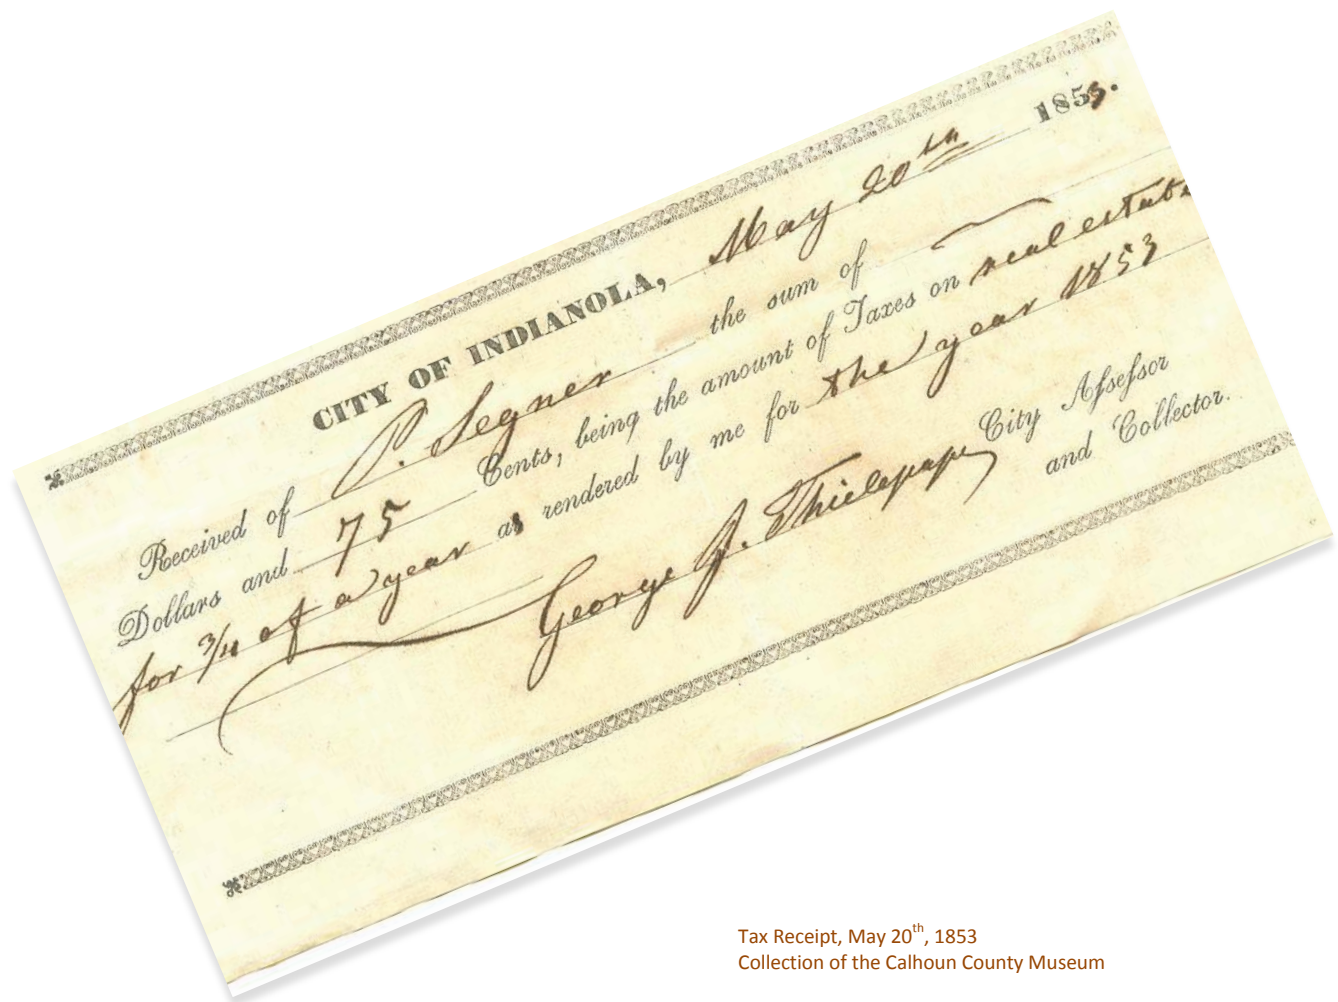 CITY OF INDIANOLA, May 20th 1853.
Received of P. Segner the sum of
Dollars and 75 Cents, being the amount of Taxes on real estate
for 3/4 of a year as rendered by me for the year 1853
George J. Thielepape City Aſseſsor
and Collector.
Tax Receipt, May 20th, 1853
Collection of the Calhoun County Museum